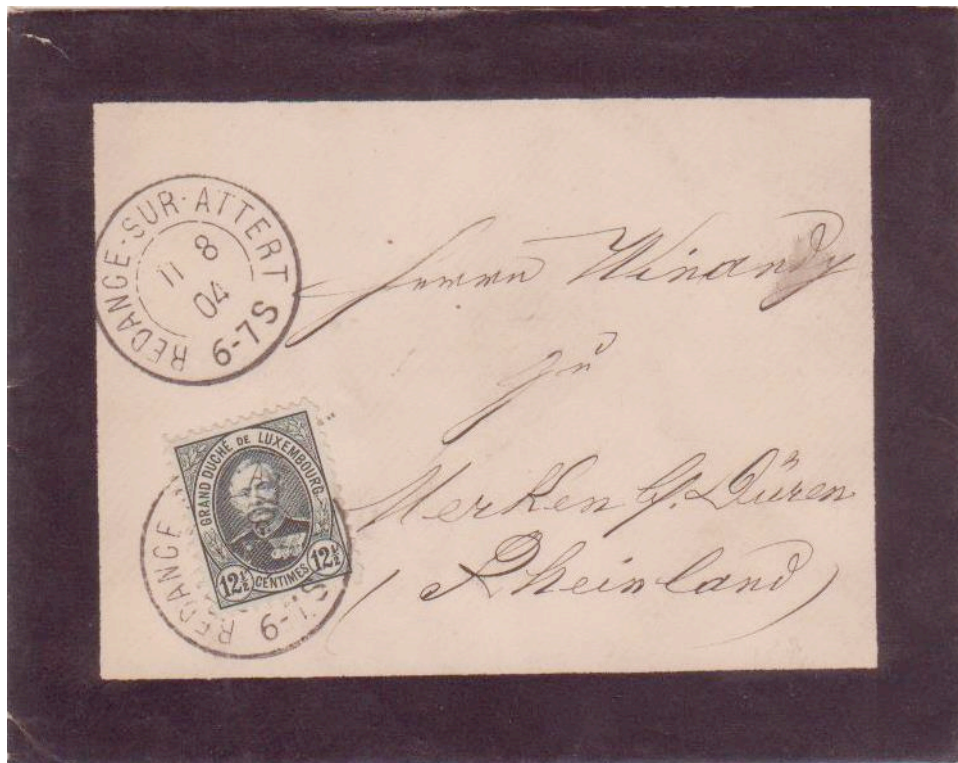 REDANGE-SUR-ATTERT
11 8
04
6-7 S
Herrn Winandy
zu
Merken b/. Düren
(Rheinland)
GRAND DUCHÉ DE LUXEMBOURG
12½ CENTIMES 12½
REDANGE
6-7 S